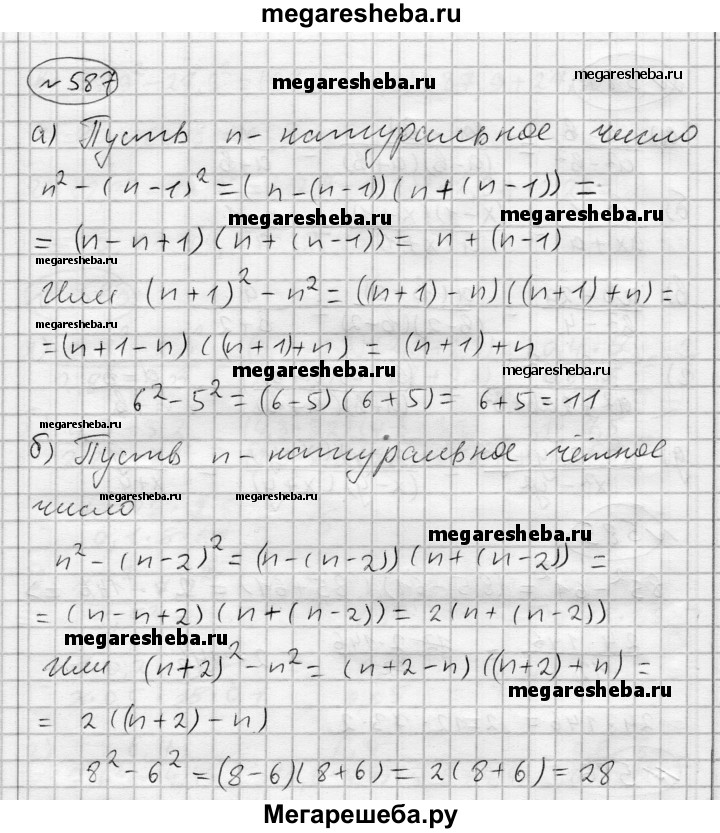 megaresheba.ru
№ 587
megaresheba.ru
megaresheba.ru
а) Пусть n - натуральное число
n² - (n-1)² = (n-(n-1))(n+(n-1)) =
megaresheba.ru
megaresheba.ru
= (n-n+1)(n+(n-1)) = n+(n-1)
megaresheba.ru
Или (n+1)² - n² = ((n+1)-n)((n+1)+n) =
megaresheba.ru
= (n+1-n)((n+1)+n) = (n+1)+n
megaresheba.ru
megaresheba.ru
6² - 5² = (6-5)(6+5) = 6+5 = 11
megaresheba.ru
б) Пусть n - натуральное чётное
megaresheba.ru
megaresheba.ru
число
megaresheba.ru
n² - (n-2)² = (n-(n-2))(n+(n-2)) =
= (n-n+2)(n+(n-2)) = 2(n+(n-2))
megaresheba.ru
Или (n+2)² - n² = (n+2-n)((n+2)+n) =
megaresheba.ru
= 2((n+2)-n)
8² - 6² = (8-6)(8+6) = 2(8+6) = 28
Мегарешеба.ру